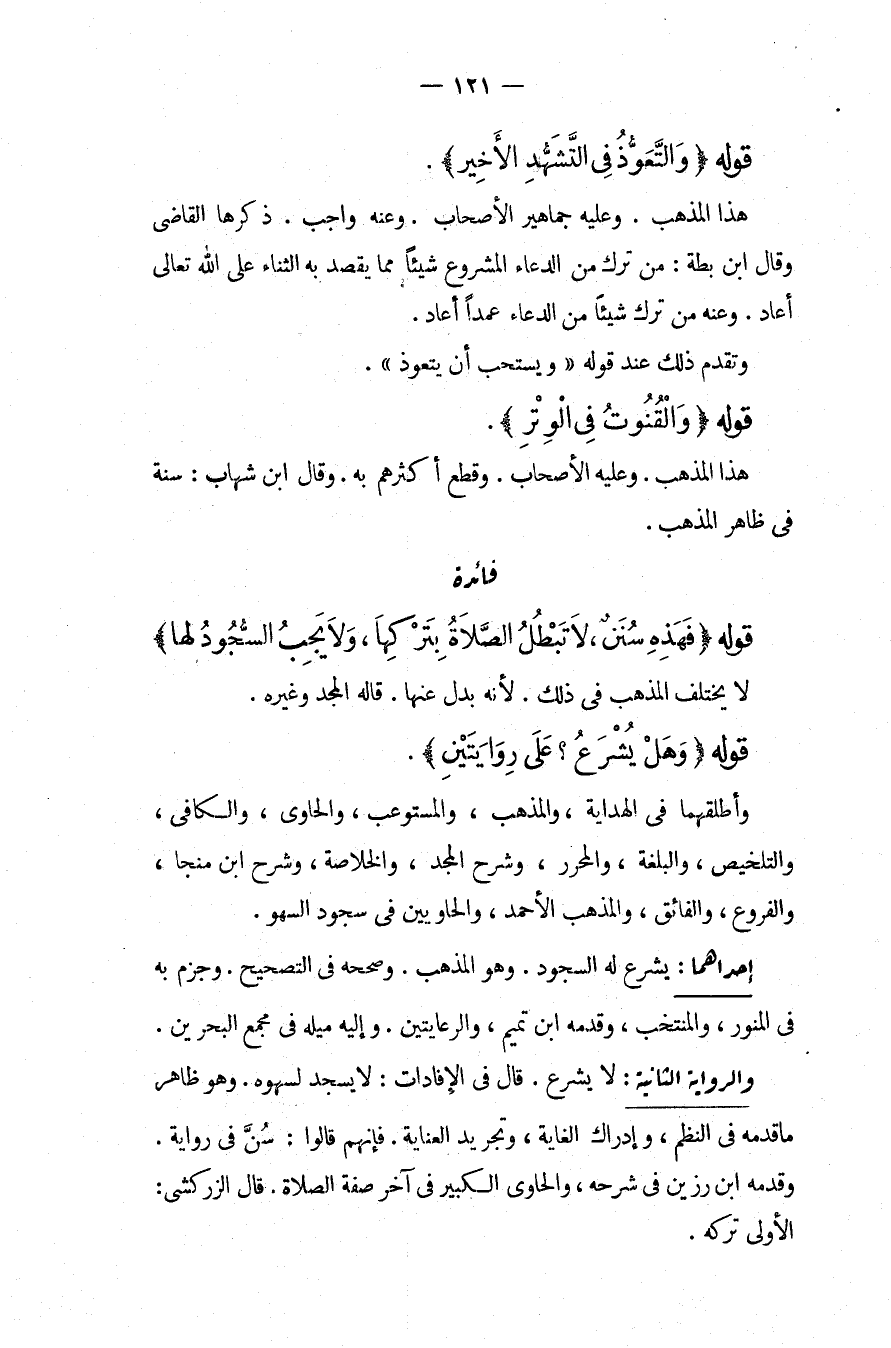 — ١٢١ —
قوله ﴿ وَالتَّعَوُّذُ فِى التَّشَهُّدِ الأَخِيرِ ﴾ .
هذا المذهب . وعليه جماهير الأصحاب . وعنه واجب . ذكرها القاضى
وقال ابن بطة : من ترك من الدعاء المشروع شيئاً مما يقصد به الثناء على الله تعالى
أعاد . وعنه من ترك شيئاً من الدعاء عمداً أعاد .
وتقدم ذلك عند قوله « ويستحب أن يتعوذ » .
قوله ﴿ وَالْقُنُوتُ فِى الْوِتْرِ ﴾ .
هذا المذهب . وعليه الأصحاب . وقطع أكثرهم به . وقال ابن شهاب : سنة
فى ظاهر المذهب .
فائدة
قوله ﴿ فَهَذِهِ سُنَنٌ ، لاَ تَبْطُلُ الصَّلاَةُ بِتَرْكِهَا ، وَلاَ يَجِبُ السُّجُودُ لها ﴾
لا يختلف المذهب فى ذلك . لأنه بدل عنها . قاله المجد وغيره .
قوله ﴿ وَهَلْ يُشْرَعُ ؟ عَلَى رِوَايَتَيْنِ ﴾ .
وأطلقهما فى الهداية ، والمذهب ، والمستوعب ، والحاوى ، والـكافى ،
والتلخيص ، والبلغة ، والمحرر ، وشرح المجد ، والخلاصة ، وشرح ابن منجا ،
والفروع ، والفائق ، والمذهب الأحمد ، والحاويين فى سجود السهو .
إحداهما : يشرع له السجود . وهو المذهب . وصححه فى التصحيح . وجزم به
فى المنور ، والمنتخب ، وقدمه ابن تميم ، والرعايتين . وإليه ميله فى مجمع البحرين .
والرواية الثانية : لا يشرع . قال فى الإفادات : لايسجد لسهوه . وهو ظاهر
ماقدمه فى النظم ، وإدراك الغاية ، وتجريد العناية . فإنهم قالوا : سُنَّ فى رواية .
وقدمه ابن رزين فى شرحه ، والحاوى الـكبير فى آخر صفة الصلاة . قال الزركشى :
الأولى تركه .